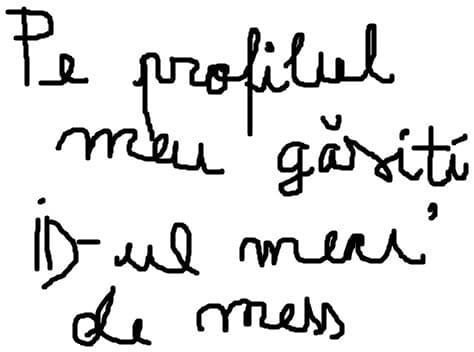 Pe profilul
meu găsiți
ID-ul meu
de mess